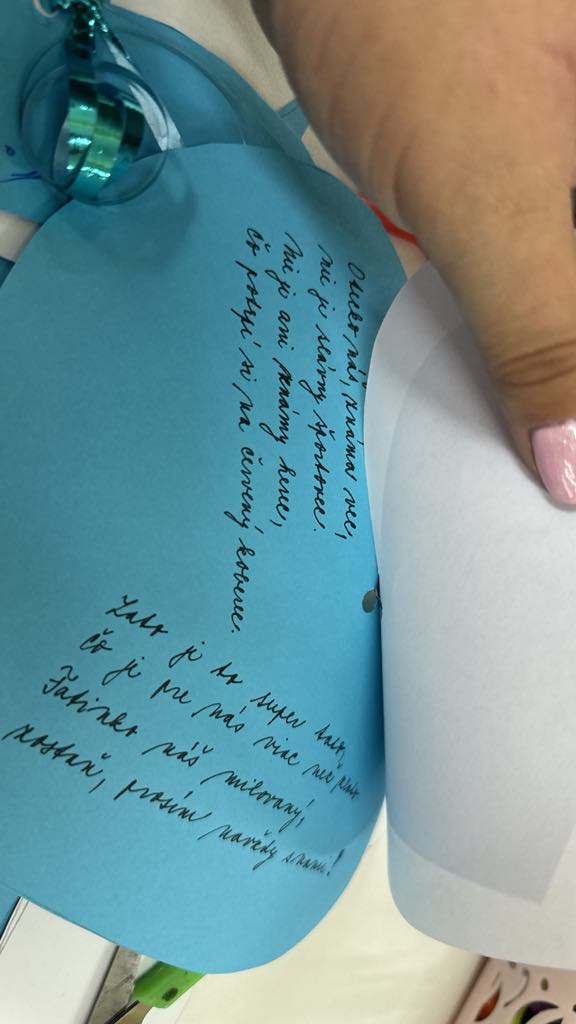 Otecko náš, známa vec,
nie je slávny športovec.
Nie je ani známy herec,
čo potrpí si na červený koberec.
Zato je to super tato,
čo je pre nás viac než zlato.
Tatinko náš milovaný,
zostaň, prosím navždy s nami!